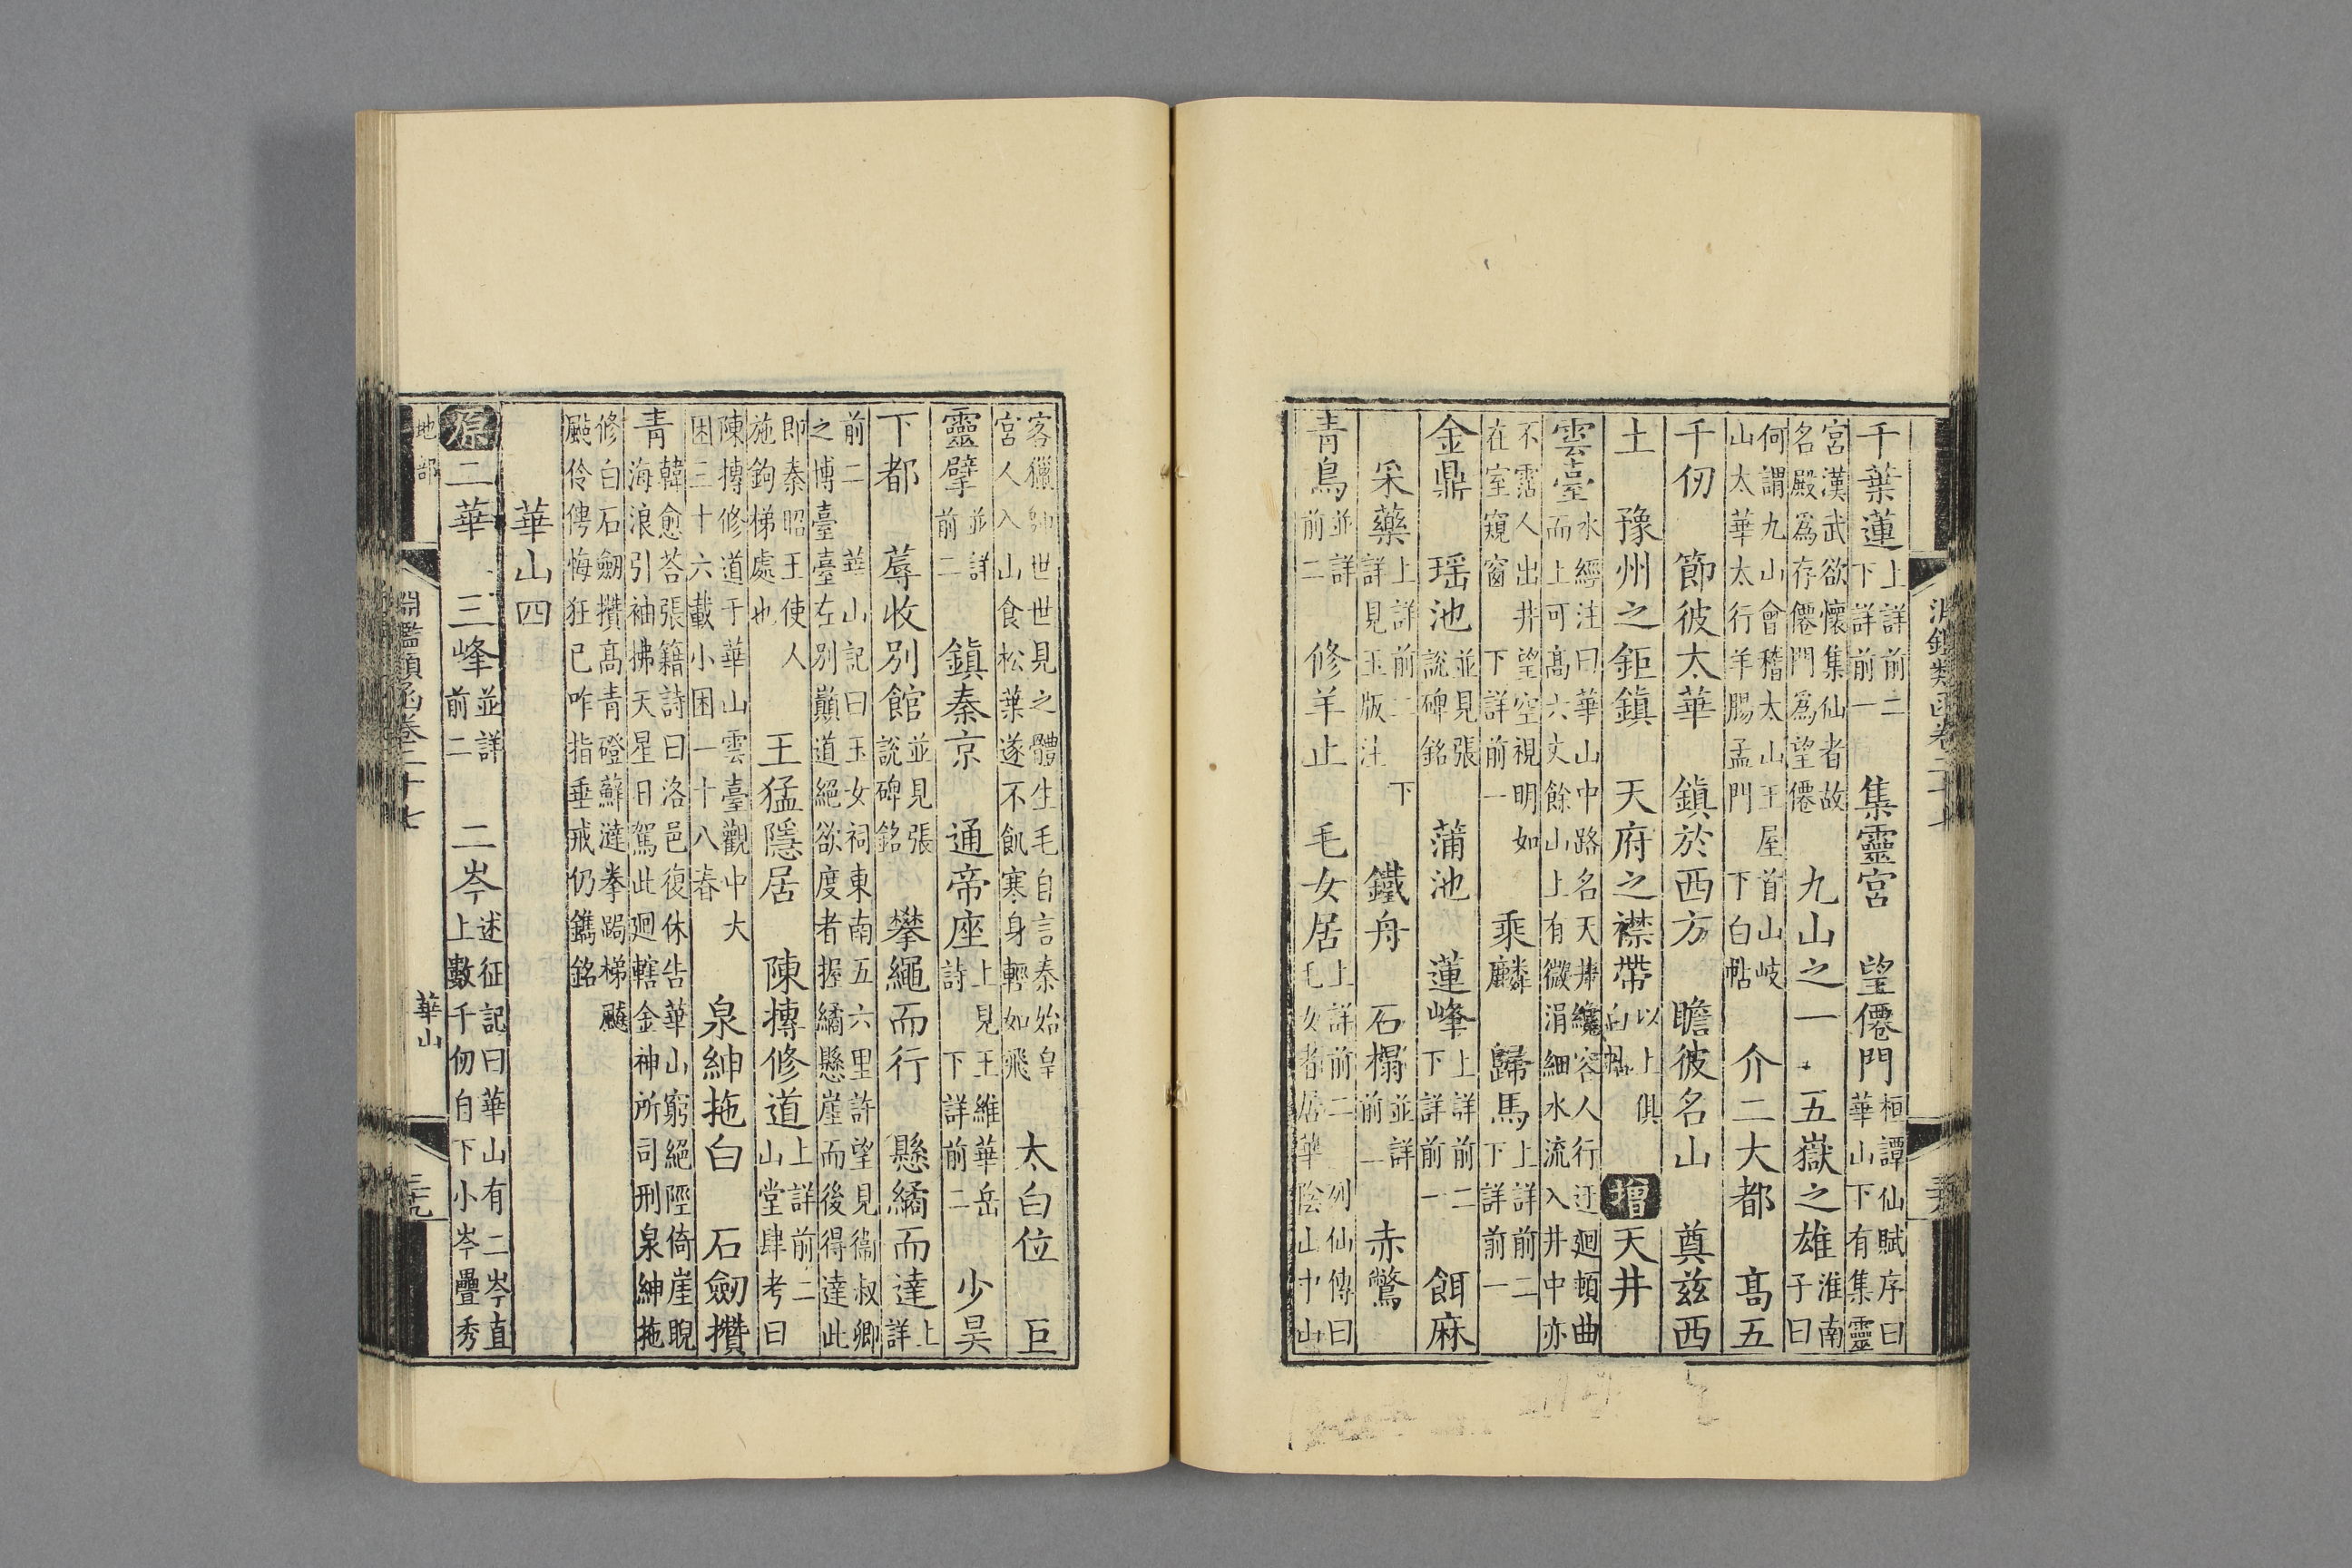 千葉蓮上詳前二下詳前一 集靈宮 望僊門桓譚仙賦序曰華山下有集靈
宮漢武欲懷集仙者故名殿爲存僊門爲望僊 九山之一 五嶽之雄淮南子曰
何謂九山會稽太山王屋首山岐山太華太行羊腸孟門 下白帖 介二大都 高五
千仞 節彼太華 鎮於西方 瞻彼名山 奠兹西
土 豫州之鉅鎮 天府之襟帶以上俱白帖 增天井
雲臺水經注曰華山中路名天井纔容人行迂廻頓曲而上可高六丈餘山上有微涓細水流入井中亦
不霑人出井望空視明如在室窺窗 下詳前一 乘麟 歸馬上詳前二下詳前一
金鼎 瑶池並見張說碑銘 蒲池 蓮峰上詳前二下詳前一 餌麻
采藥上詳前二 下詳見玉版注 鐵舟 石榻並詳前一 赤鷩
青鳥並詳前二 修羊止 毛女居上詳前二 列仙傳曰毛女者居華陰山中山
淵鑑類函卷二十七
客獵師世世見之體生毛自言秦始皇宮人入山食松葉遂不飢寒身輕如飛 太白位 巨
靈擘並詳前二 鎮秦京 通帝座上見王維華岳詩 下詳前二 少昊
下都 蓐收別館並見張說碑銘 攀繩而行 懸繘而達上詳
前二 華山記曰玉女祠東南五六里許望見衞叔卿之博臺臺左別巔道絕欲度者握繘懸崖而後得達此
即秦昭王使人施鉤梯處也 王猛隱居 陳摶修道上詳前二山堂肆考曰
陳摶修道于華山雲臺觀中大困三十六載小困一十八春 泉紳拖白 石劒攢
青韓愈荅張籍詩曰洛邑復休告華山窮絕陘倚崖睨海浪引袖拂天星日駕此廻轄金神所司刑泉紳拖
修白石劒攢高青磴蘚澾拳跼梯飈颭伶俜悔狂已咋指垂戒仍鐫銘
華山四
原二華 三峰並詳前二 二岑述征記曰華山有二岑直上數千仞自下小岑疊秀
地部
淵鑑類函卷二十七
華山